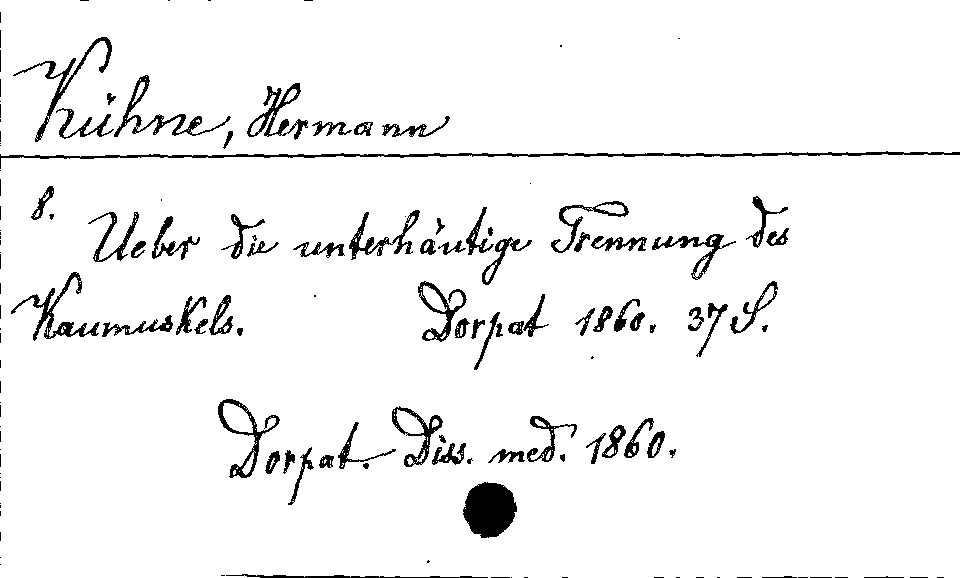 Kühne, Hermann
8.
Ueber die unterhäutige Trennung des
Kaumuskels. Dorpat 1860. 37 S.
Dorpat. Diss. med. 1860.